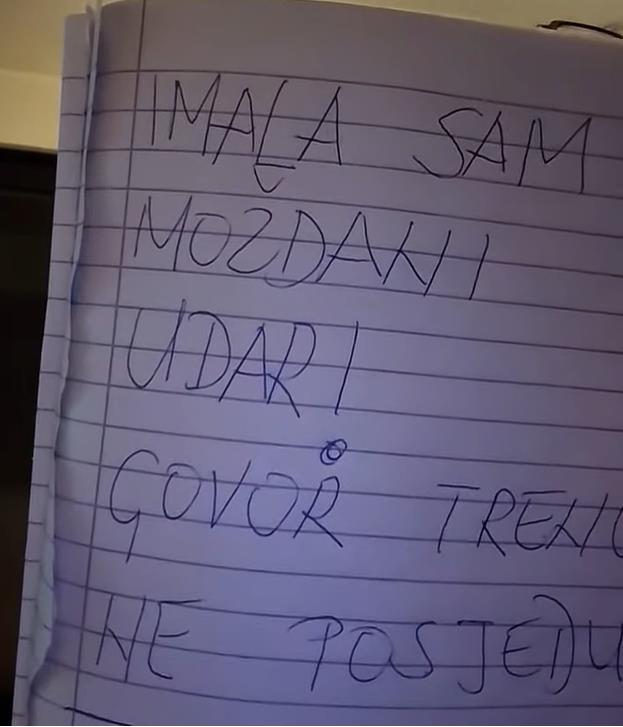 IMALA SAM
MOŽDANI
UDAR I
GOVOR TRENU
NE POSJEDU